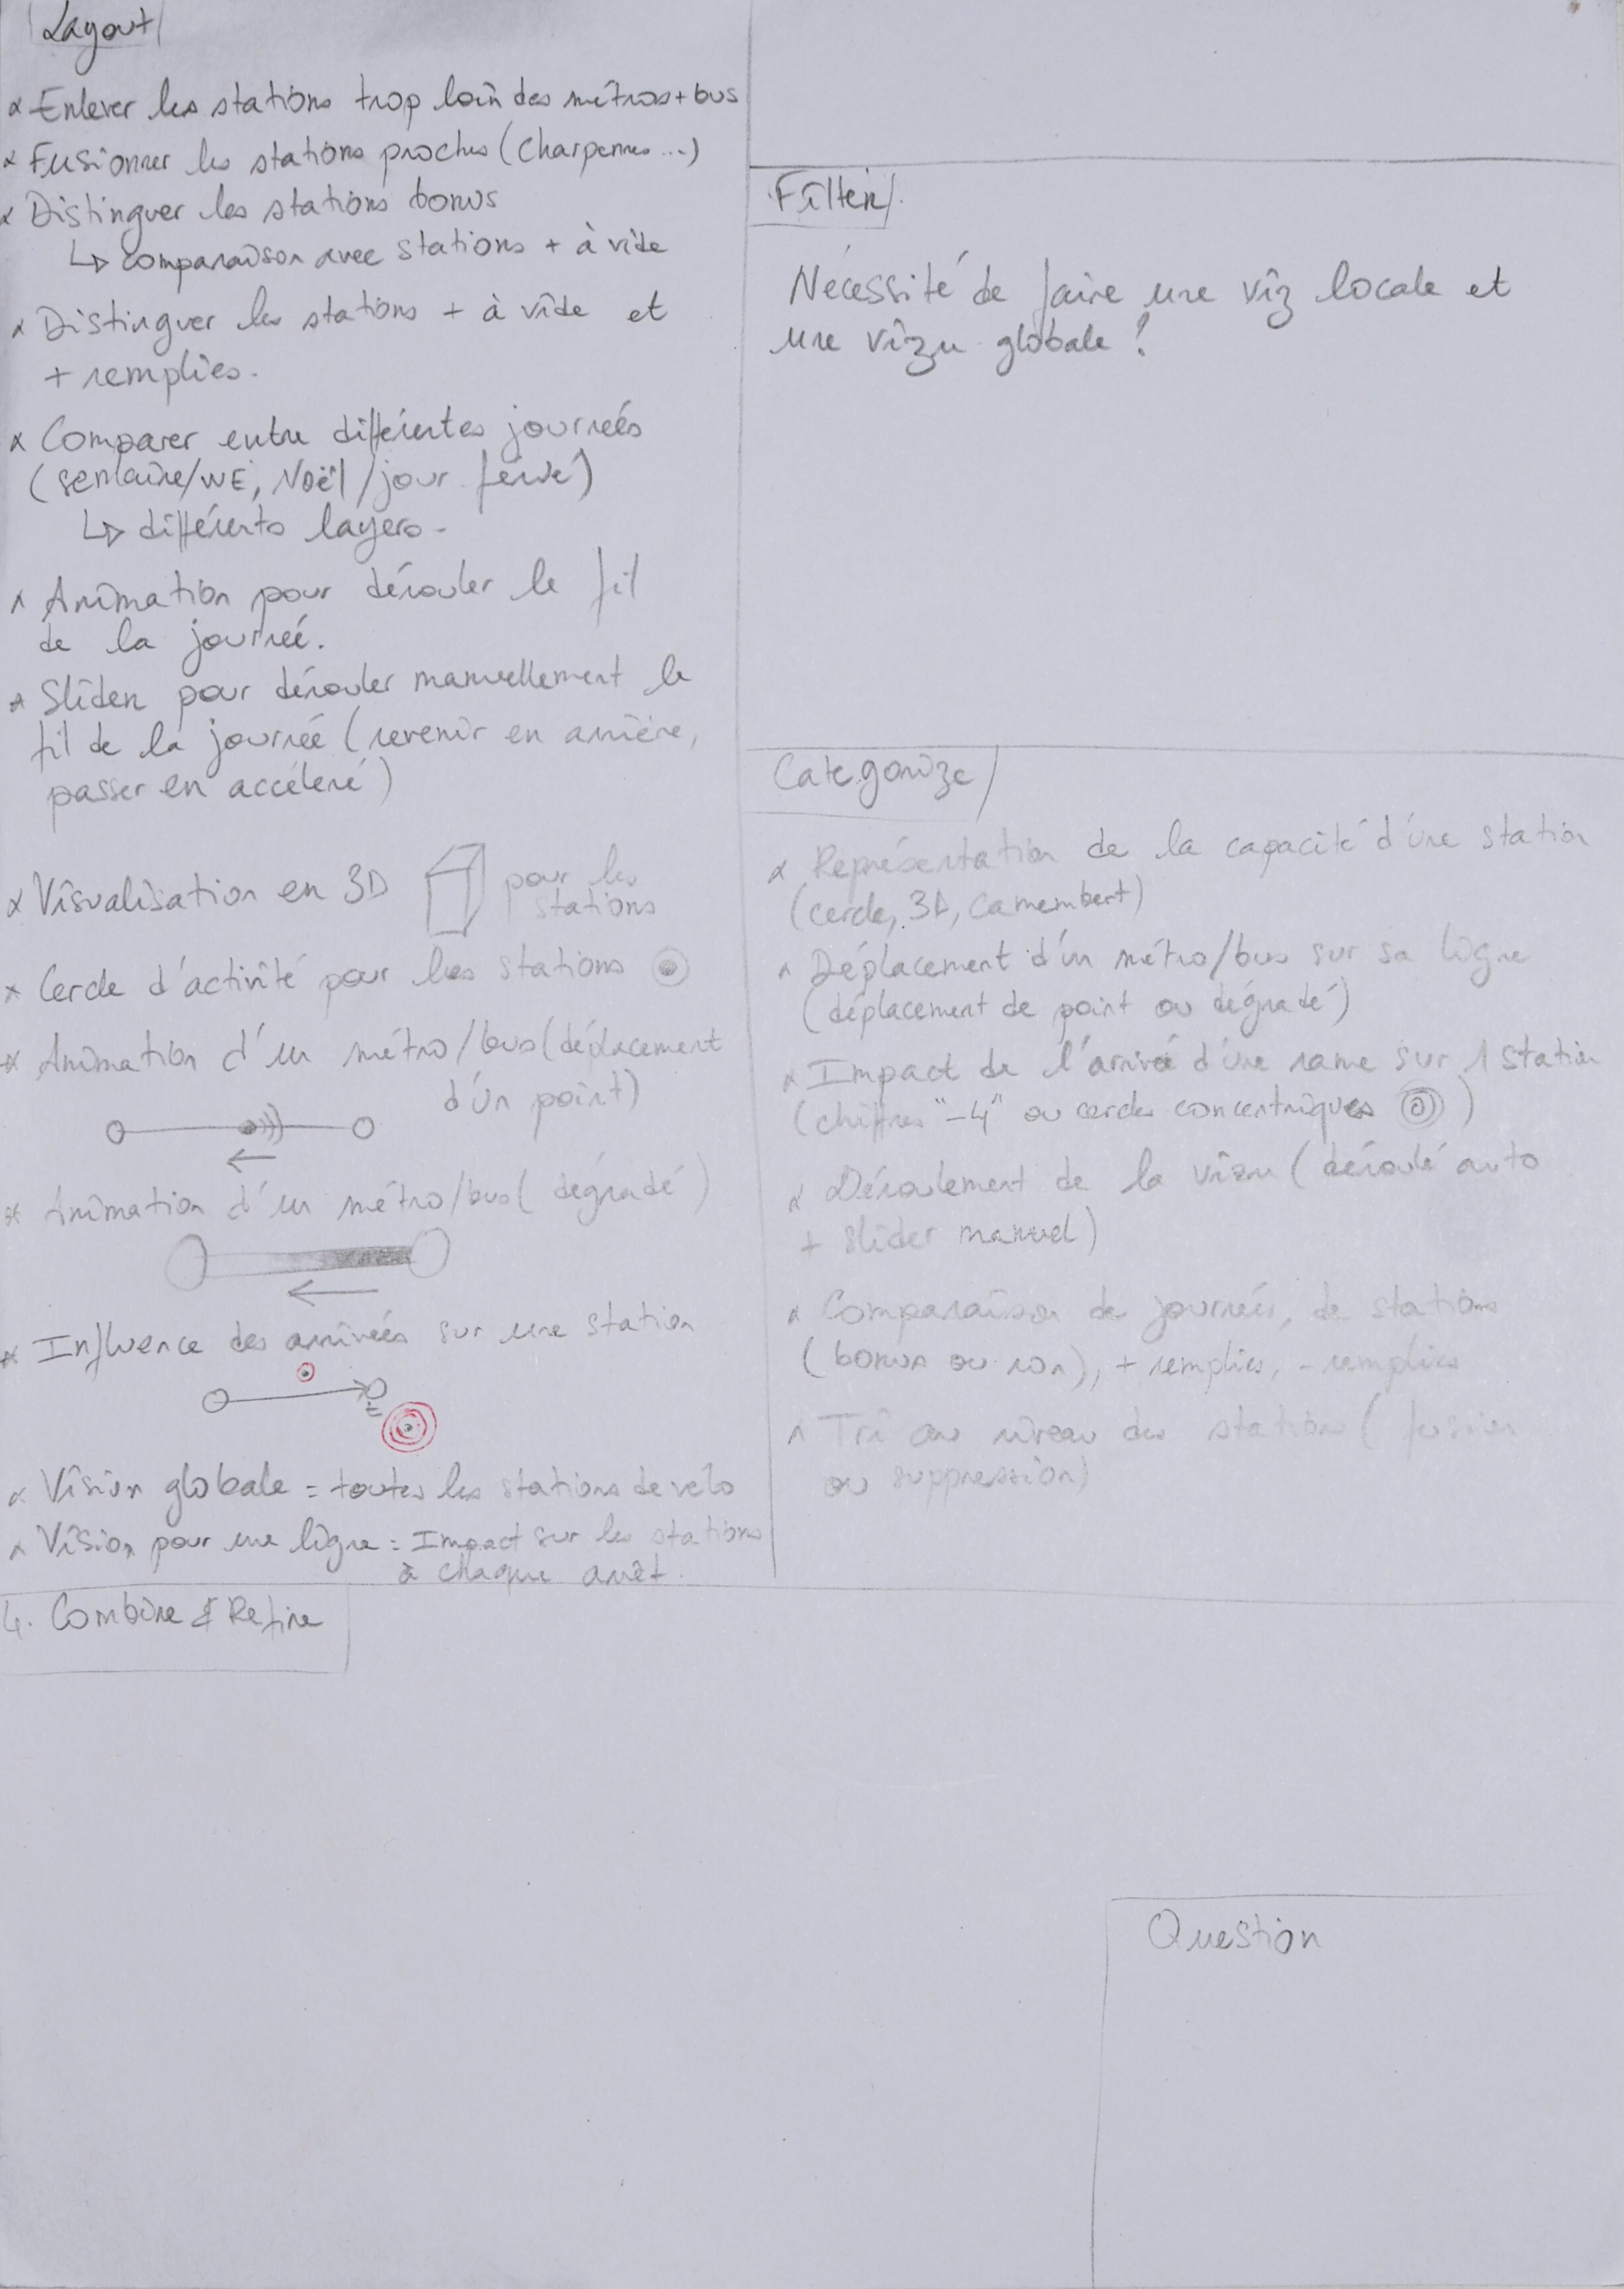 Layout
Enlever les stations trop loin des métros + bus
Fusionner les stations proches (Charpennes ...)
Distinguer les stations bonus
↳ comparaison avec stations + à vide
Distinguer les stations + à vide et
+ remplies.
Comparer entre différentes journées
(semaine/WE, Noël/jour férié)
↳ différents layers.
Animation pour dérouler le fil
de la journée.
Slider pour dérouler manuellement le
fil de la journée (revenir en arrière,
passer en accéléré)
Visualisation en 3D pour les
stations
Cercle d'activité pour les stations
Animation d'un métro/bus (déplacement
d'un point)
Animation d'un métro/bus (dégradé)
Influence des arrivées sur une station
Vision globale = toutes les stations de vélo
Vision pour une ligne = Impact sur les stations
à chaque arrêt.
Filter
Nécessité de faire une viz locale et
une vizu globale ?
Categorize
Représentation de la capacité d'une station
(cercle, 3D, camembert)
Déplacement d'un métro/bus sur sa ligne
(déplacement de point ou dégradé)
Impact de l'arrivée d'une rame sur 1 station
(chiffres "-4" ou cercles concentriques)
Déroulement de la vizu (déroulé auto
+ slider manuel)
Comparaison de journées, de stations
(bonus ou non), + remplies, - remplies
Tri au niveau des stations (fusion
ou suppression)
4. Combine & Refine
Question